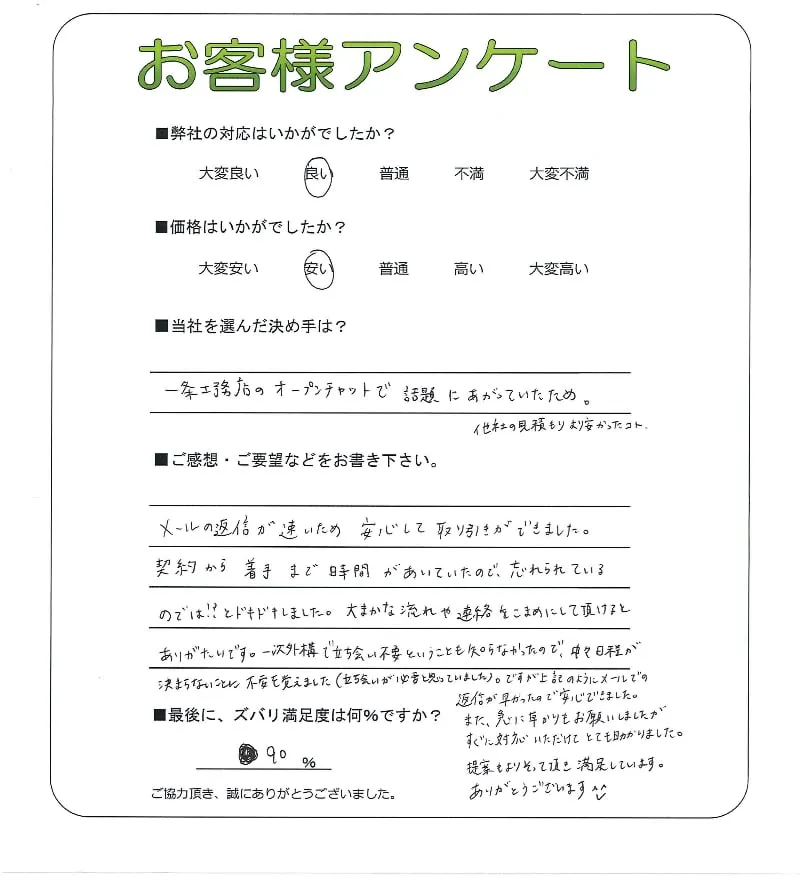 お客様アンケート
■弊社の対応はいかがでしたか？
大変良い 良い 普通 不満 大変不満
■価格はいかがでしたか？
大変安い 安い 普通 高い 大変高い
■当社を選んだ決め手は？
一条工務店の オープンチャットで 話題 にあがっていたため。
他社の見積もりより安かったコト.
■ご感想・ご要望などをお書き下さい。
メールの返信が速いため 安心して取り引きができました。
契約から着手まで時間があいていたので、忘れられている
のでは!?とドキドキしました。大まかな流れや連絡をこまめにして頂けると
ありがたいです。一次外構で立ち会い不要ということも知らなかったので、中々日程が
決まらないことに不安も覚えました(立ち会いが必要と思っていました)。ですが上記のようにメールでの
返信が早かったので安心できました。
また、急に  もお願いしましたが
すぐに対応いただけてとても助かりました。
提案も   って頂き満足しています。
ありがとうございます^^
■最後に、ズバリ満足度は何％ですか？
90 ％
ご協力頂き、誠にありがとうございました。